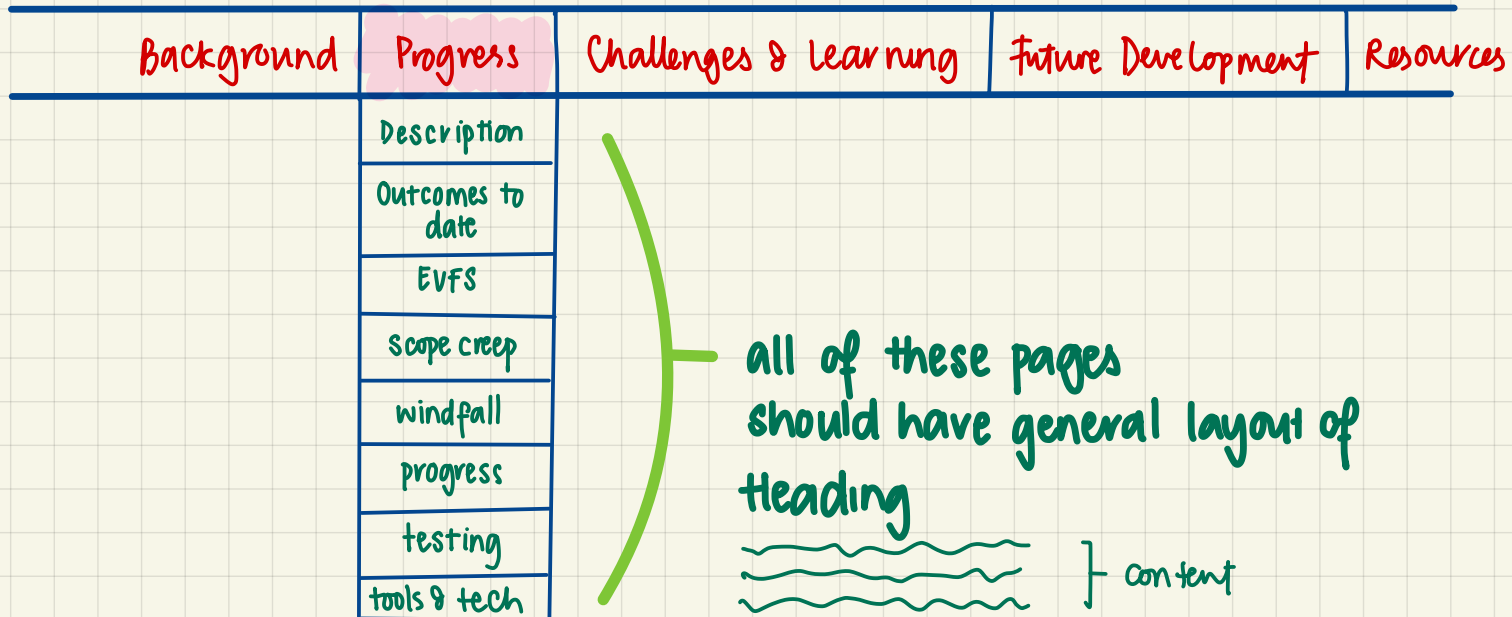 Background Progress Challenges & Learning Future Development Resources
Description
Outcomes to
date
EVFS
scope creep
windfall
progress
testing
tools & tech
all of these pages
should have general layout of
Heading
content